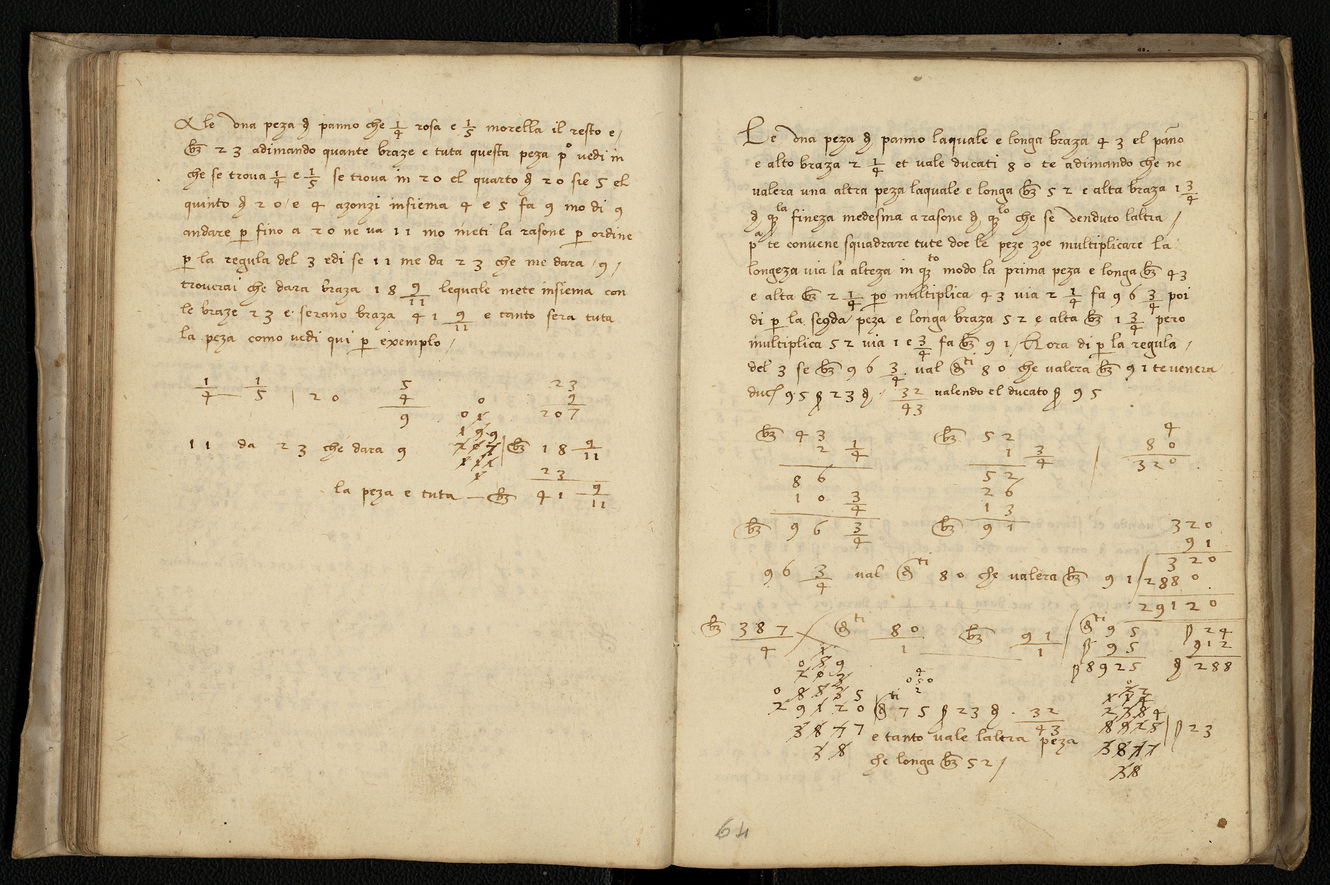 le una peza d panno che 1/4 rosa e 1/5 morella il resto e /
bz 23 adimando quante braze e tuta questa peza po vedi in
che se trova 1/4 e 1/5 se trova in 20 el quarto d 20 sie 5 el
quinto d 20 / e 4 azonzi insiema 4 e 5 fa 9 mo di 9
andare p fino a 20 ne va 11 mo meti la rasone p ordine
p la regula del 3 edi se 11 me da 23 che me dara / 9 /
troverai che dara braza 18 9/11 lequale mete insiema con
le braze 23 e serano braza 41 9/11 e tanto sera tuta
la peza como vedi qui p exemplo /
1/4 1/5 | 20
5
4
9
23
9
207
11 da 23 che dara 9
bz 18 9/11
23
la peza e tuta — bz 41 9/11
Le una peza d panno laquale e longa braza 43 el pano
e alto braza 2 1/4 et vale ducati 80 te adimando che ne
valera una altra peza laquale e longa bz 52 e alta braza 1 3/4
d qla fineza medesma a rasone d qlo che se venduto laltra /
pa te convene squadrare tute doe le peze zoe multiplicare la
longeza via la alteza in qto modo la prima peza e longa bz 43
e alta bz 2 1/4 po multiplica 43 via 2 1/4 fa 96 3/4 poi
di p la segda peza e longa braza 52 e alta bz 1 3/4 pero
multiplica 52 via 1 e 3/4 fa bz 91 / ora di p la regula /
del 3 se bz 96 3/4 val dti 80 che valera bz 91 te venera
duc 95 23 32/43 valendo el ducato 95
bz 43
2 1/4
86
10 3/4
bz 96 3/4
bz 52
1 3/4
52
26
13
bz 91
4
80
320
320
91
320
2880
29120
96 3/4 val dti 80 che valera bz 91
bz 387/4 dti 80/1 bz 91/1
dti 95
95
8925
24
912
288
29120
387
38
dti 75 23 32/43
e tanto vale laltra peza
che longa bz 52 /
8925
23
64